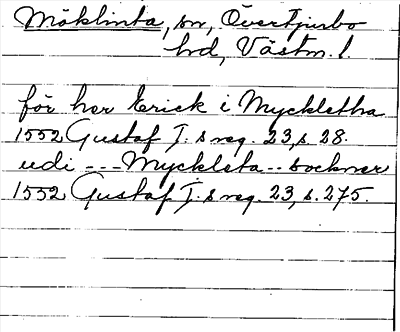 Möklinta, sn, Övertjurbo
hd, Västm. l.
för her Erick i Myckletha
1552 Gustaf I:s reg. 23, s. 28.
udi --- Myckleta -- sockner
1552 Gustaf I:s reg. 23, s. 275.